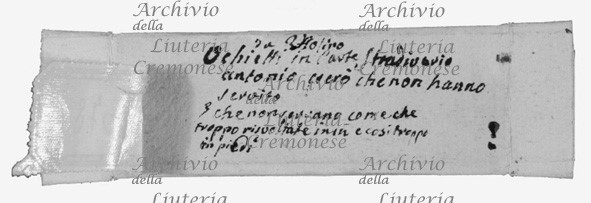 Archivio
della
Liuteria
Cremonese
Archivio
della
Liuteria
Cremonese
3a
Ochietti in carte Stradivario
antonio che non hanno
servito
3 che non servano come che
troppo rivoltate in in e cosi troppo
in piedi
Archivio
della
Liuteria
Cremonese
Archivio
della
Liuteria
Archivio
della
Liuteria